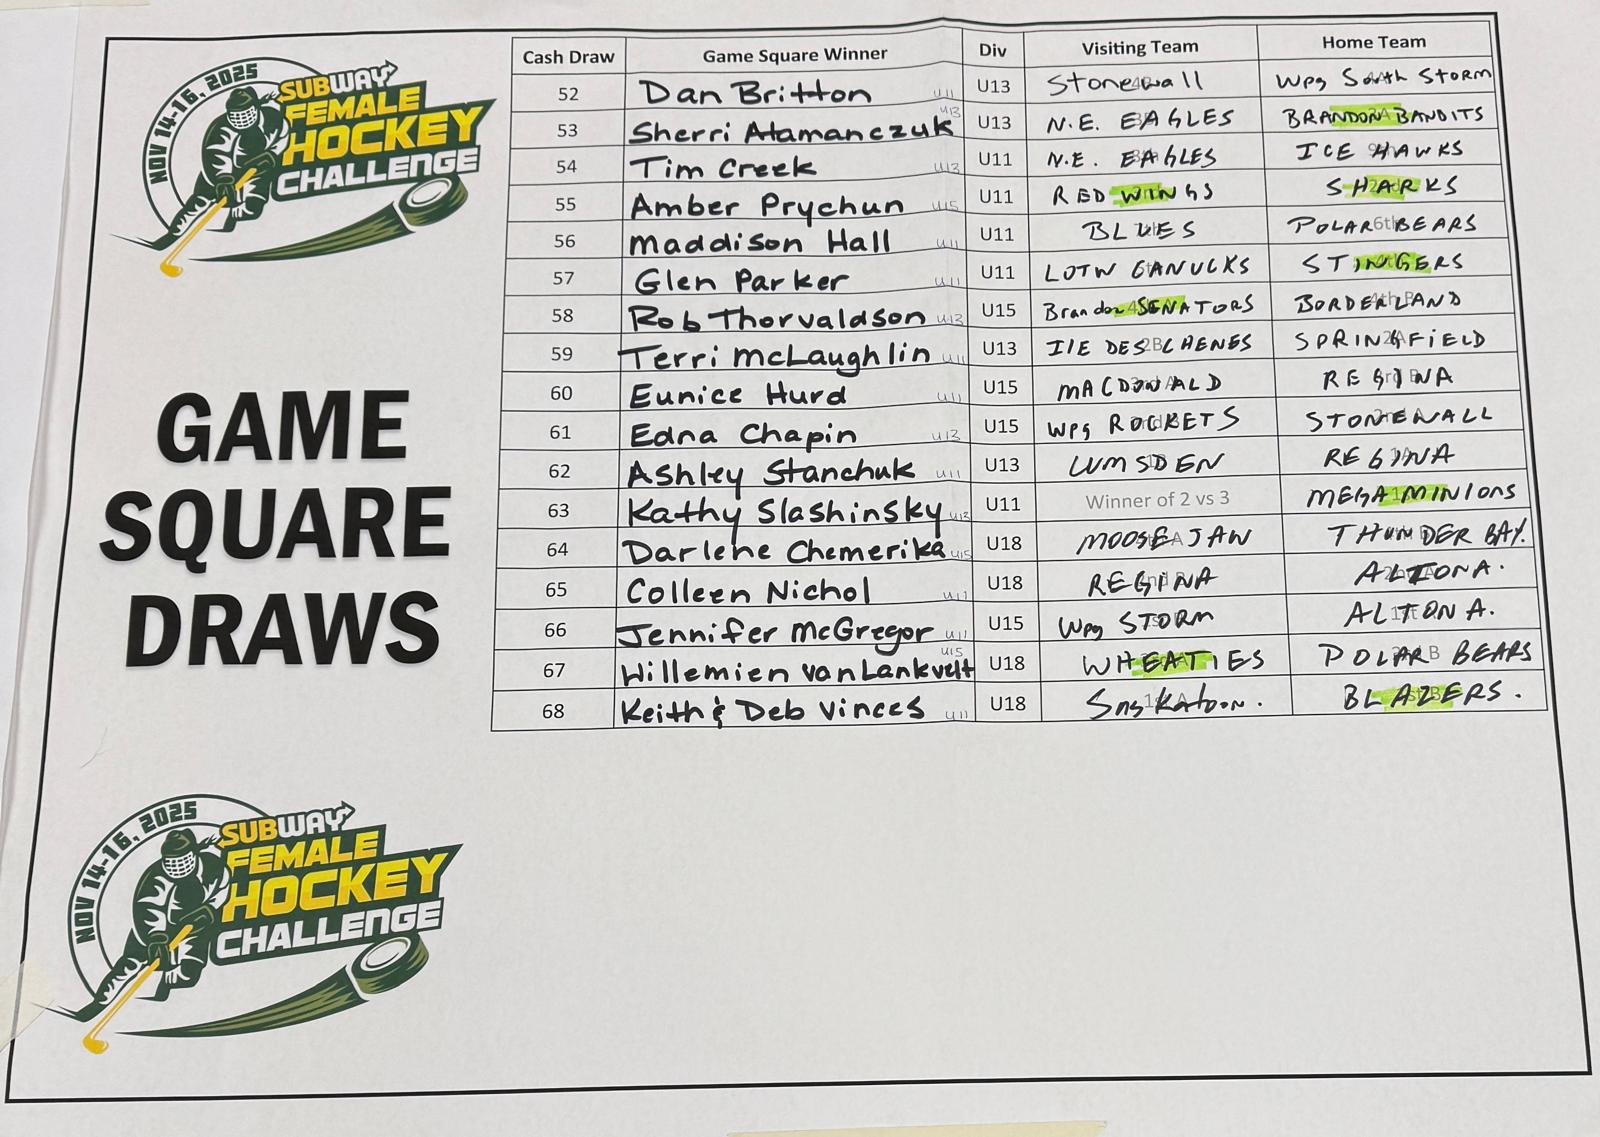 NOV 14-16, 2025
SUBWAY
FEMALE
HOCKEY
CHALLENGE
GAME
SQUARE
DRAWS
NOV 14-16, 2025
SUBWAY
FEMALE
HOCKEY
CHALLENGE
Cash Draw Game Square Winner Div Visiting Team Home Team
52 Dan Britton U11 U13 Stonewall Wpg South Storm
53 Sherri Atamanczuk U13 U13 N.E. EAGLES BRANDON BANDITS
54 Tim Creek U13 U11 N.E. EAGLES ICE HAWKS
55 Amber Prychun U15 U11 RED WINGS SHARKS
56 Maddison Hall U11 U11 BLUES POLAR BEARS
57 Glen Parker U11 U11 LOTW CANUCKS STINGERS
58 Rob Thorvaldson U13 U15 Brandon SENATORS BORDERLAND
59 Terri McLaughlin U11 U13 IlE DES CHENES SPRINGFIELD
60 Eunice Hurd U11 U15 MACDONALD REGINA
61 Edna Chapin U13 U15 Wpg ROCKETS STONEWALL
62 Ashley Stanchuk U11 U13 LUMSDEN REGINA
63 Kathy Slashinsky U13 U11 Winner of 2 vs 3 MEGA MINIONS
64 Darlene Chemerika U15 U18 MOOSE JAW THUNDER BAY.
65 Colleen Nichol U11 U18 REGINA ALTONA.
66 Jennifer McGregor U11 U15 Wpg STORM ALTONA.
67 Willemien van Lankvelt U15 U18 WHEATIES POLAR BEARS
68 Keith & Deb Vinces U11 U18 Saskatoon. BLAZERS.